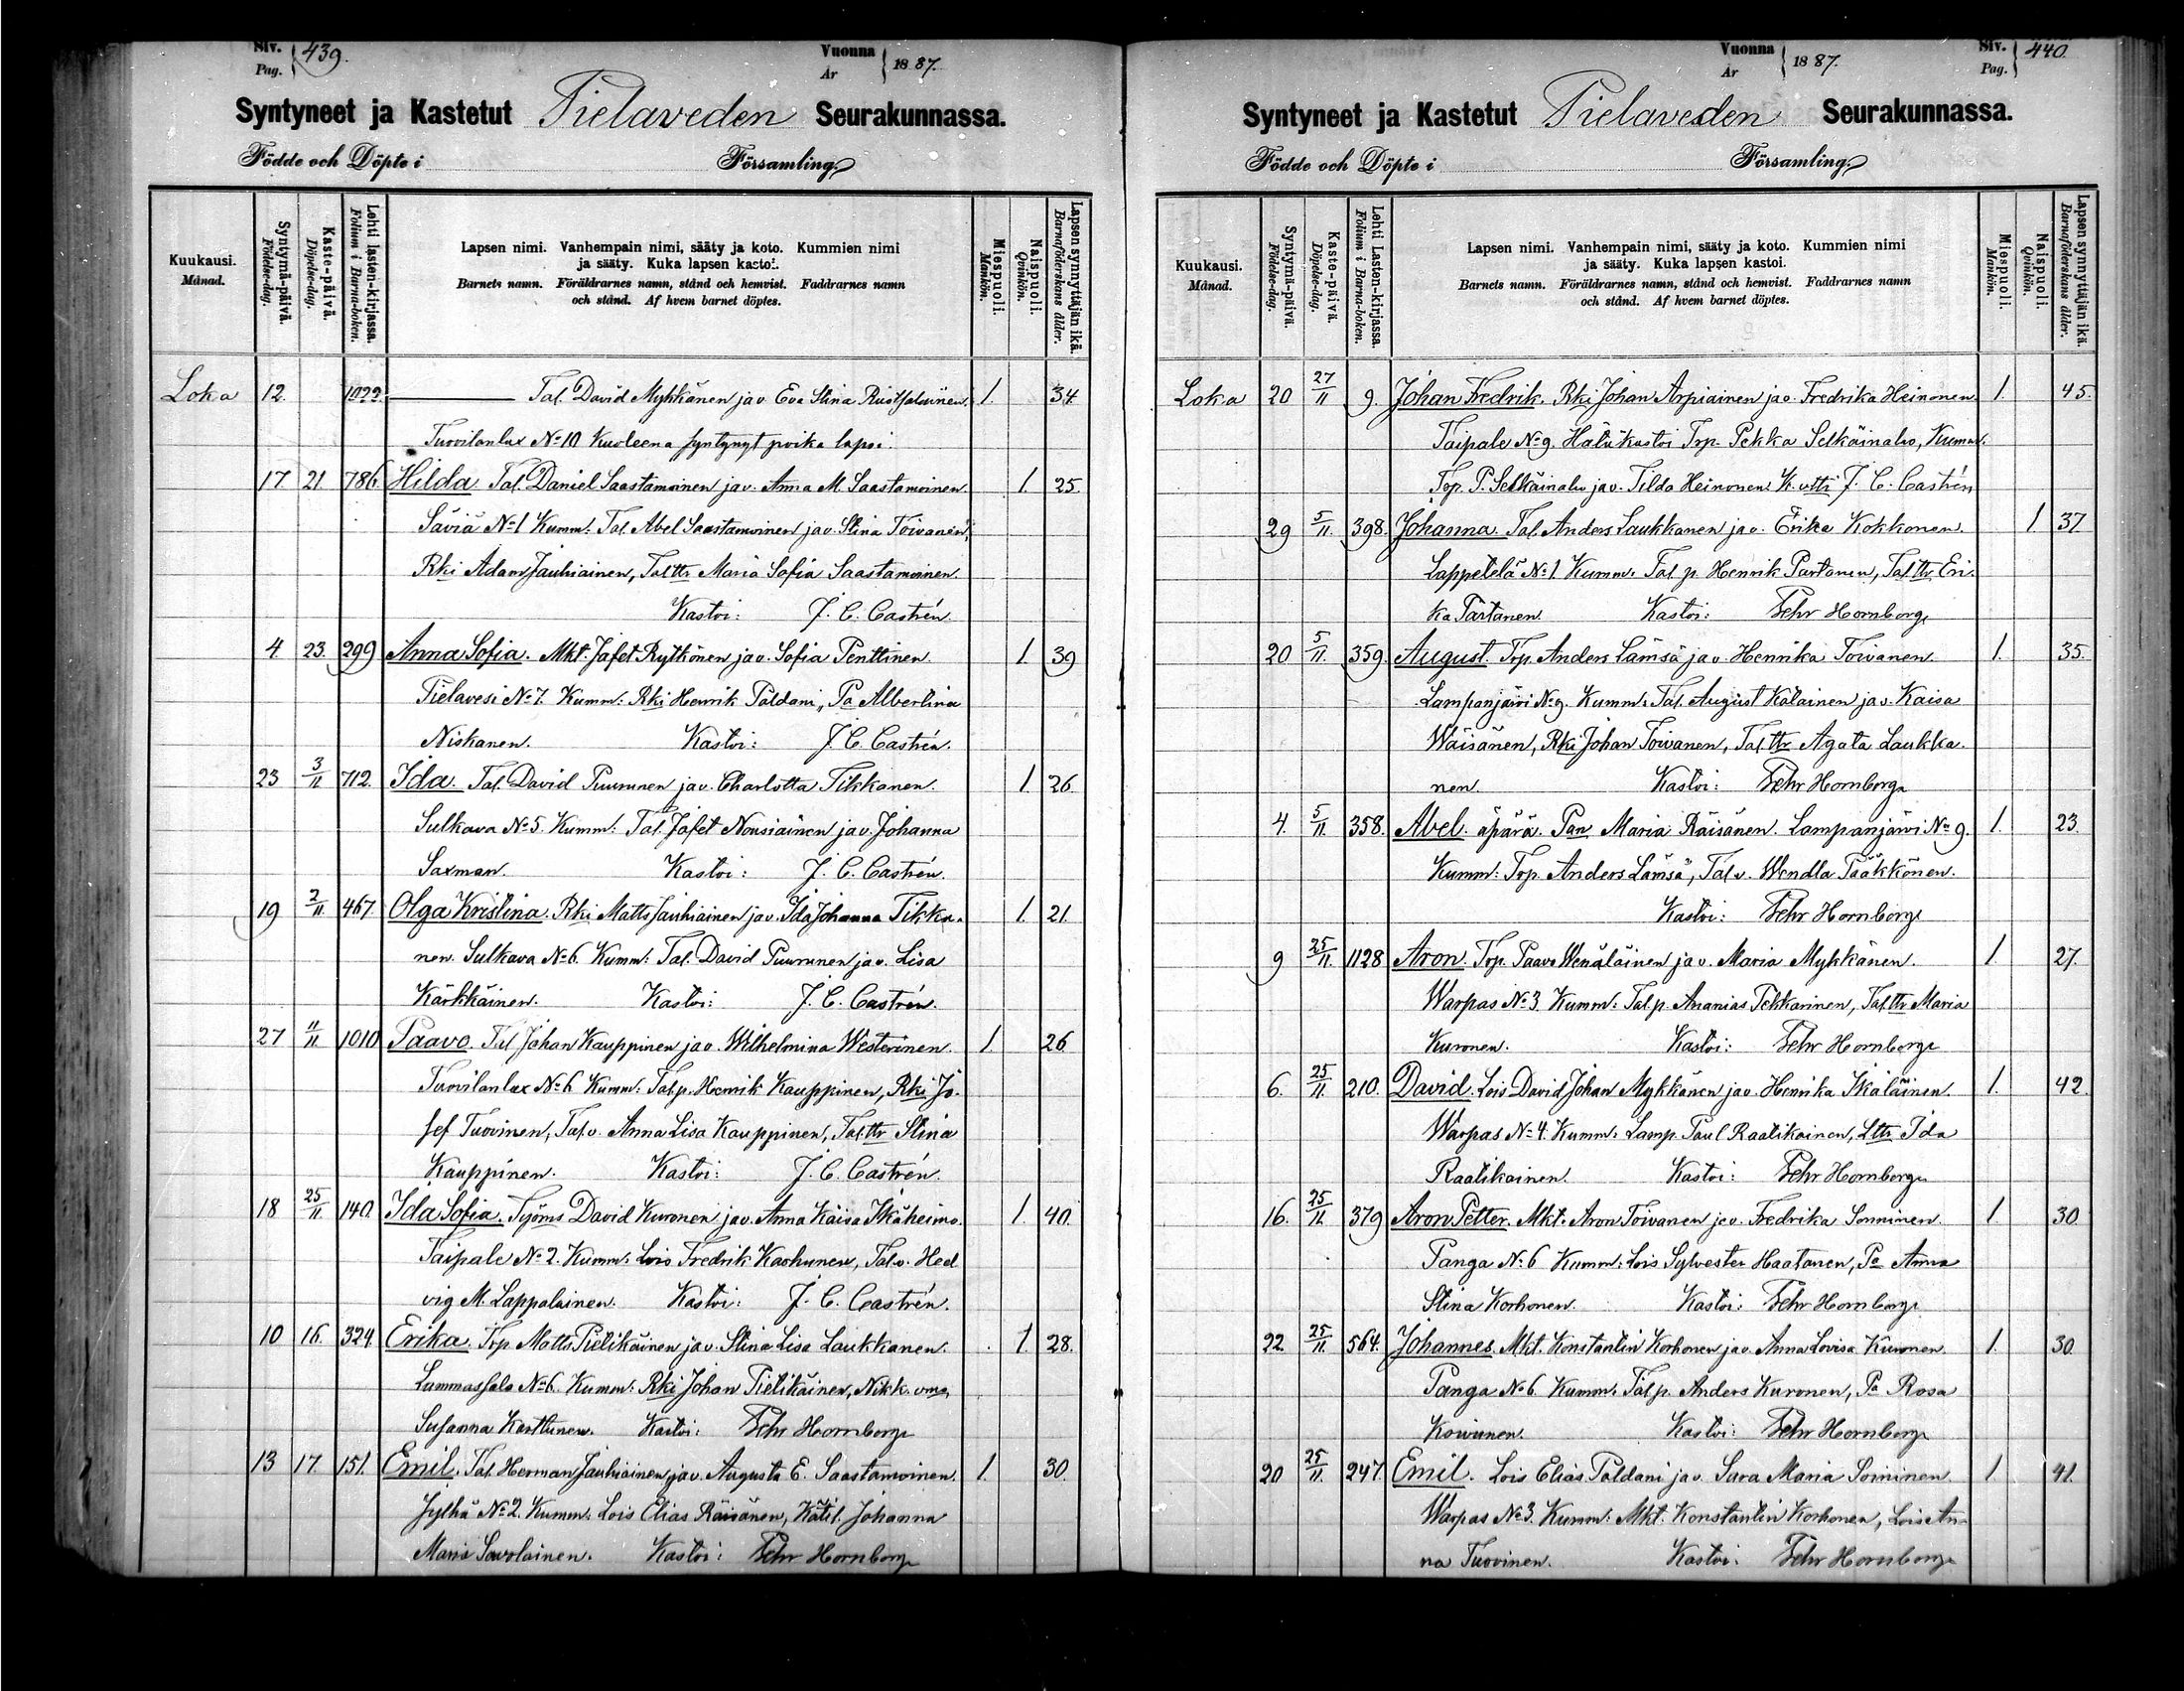 Siv. Pag. 439.
Vuonna År 1887.
Syntyneet ja Kastetut Pielaveden Seurakunnassa.
Födde och Döpte i Församling.
Kuukausi. Månad.
Syntymä-päivä. Födelse-dag.
Kaste-päivä. Döpelse-dag.
Lehti lasten-kirjassa. Folium i Barna-boken.
Lapsen nimi. Vanhempain nimi, sääty ja koto. Kummien nimi
ja sääty. Kuka lapsen kastoi.
Barnets namn. Föräldrarnes namn, stånd och hemvist. Faddrarnes namn
och stånd. Af hvem barnet döptes.
Miespuoli. Mankön.
Naispuoli. Qvinkön.
Lapsen synnyttäjän ikä. Barnaföderskans ålder.
Loka 12. 1022. Tal. David Mykkänen ja v. Eva Stina 1. 34.
Tuovilanlax No 10 Kuoleena syntynyt poika lapsi.
17. 21. 786. Hilda. Tal. Daniel Saastamoinen ja v. Anna M. Saastamoinen. 1. 25.
Säviä No 1 Kumm: Tal. Abel Saastamoinen ja v. Stina Toivanen,
Rki Adam Jauhiainen, Tal. ttr Maria Sofia Saastamoinen.
Kastoi: J. C. Castrén.
4. 23. 299 Anna Sofia. Mkt. Jafet Rytkönen ja v. Sofia Penttinen. 1. 39
Pielavesi No 7. Kumm: Rki Henrik Paldani, Pa Albertina
Niskanen. Kastoi: J. C. Castrén.
23 3/11 712. Ida. Tal. David Puurunen ja v. Charlotta Tikkanen. 1. 26.
Sulkava No 5. Kumm: Tal. Jafet Nousiainen ja v. Johanna
Saxman. Kastoi: J. C. Castrén.
19 2/11 467 Olga Kristina. Rki Matts Jauhiainen ja v. Ida Johanna Tikka-
nen. Sulkava No 6. Kumm: Tal. David Puurunen ja v. Lisa
Kärkkäinen. Kastoi: J. C. Castrén.
27 11/11 1010 Paavo. Tal Johan Kauppinen ja v. Wilhelmina Westerinen. 1. 26.
Tuovilanlax No 6 Kumm: Tal. p. Henrik Kauppinen, Rki Jo-
sef Tuovinen, Tal. v. Anna Lisa Kauppinen, Tal. ttr Stina
Kauppinen. Kastoi: J. C. Castrén.
18 25/11 140. Ida Sofia. Työms David Kuronen ja v. Anna Kaisa Ikäheimo. 1. 40.
Taipale No 2. Kumm: Lois Fredrik Karhunen, Tal. v. Hed
vig M. Lappalainen. Kastoi: J. C. Castrén.
10 16. 324. Erika. Trp Matts Pielikäinen ja v. Stina Lisa Laukkanen. 1. 28.
Lammassalo No 6. Kumm: Rki Johan Tielikäinen, Nikk. vmo,
Susanna Karttunen. Kastoi: Fehr Hornborg
13 17. 151. Emil. Tal. Herman Jauhiainen ja v. Augusta E. Saastamoinen. 1. 30.
Jylhä No 2. Kumm: Lois Elias Räisänen, Kätil. Johanna
Maria Savolainen. Kastoi: Fehr Hornborg
Vuonna År 1887.
Siv. Pag. 440.
Syntyneet ja Kastetut Pielaveden Seurakunnassa.
Födde och Döpte i Församling.
Kuukausi. Månad.
Syntymä-päivä. Födelse-dag.
Kaste-päivä. Döpelse-dag.
Lehti Lasten-kirjassa. Folium i Barna-boken.
Lapsen nimi. Vanhempain nimi, sääty ja koto. Kummien nimi
ja sääty. Kuka lapsen kastoi.
Barnets namn. Föräldrarnes namn, stånd och hemvist. Faddrarnes namn
och stånd. Af hvem barnet döptes.
Miespuoli. Mankön.
Naispuoli. Qvinkön.
Lapsen synnyttäjän ikä. Barnaföderskans ålder.
Loka 20 27/11 9. Johan Fredrik. Rki Johan Arpiainen ja v. Fredrika Heinonen 1. 45.
Taipale No 9. Hätä kastoi Trp. Pekka Selkäinaho, Kumm.
Trp. P. Selkäinaho ja v. Tilda Heinonen. K. vtti J. C. Castrén
29 5/11. 398. Johanna. Tal. Anders Laukkanen ja v. Erika Kokkonen. 1. 37.
Lappetelä No 1. Kumm: Tal. p. Henrik Partanen, Tal. ttr Eri-
ka Partanen. Kastoi: Fehr Hornborg
20 5/11. 359. August. Trp. Anders Lämsä ja v. Henrika Toivanen. 1. 35.
Lampanjärvi No 9. Kumm: Tal. August Kälainen ja v. Kaisa
Wäisänen, Rki Johan Toivanen, Tal. ttr Agata Laukka-
nen. Kastoi: Fehr Hornborg
4. 5/11. 358. Abel. äpärä. Pan Maria Räisänen. Lampanjärvi No 9. 1. 23.
Kumm: Trp. Anders Lämsä, Tal. v. Wendla Pääkkönen.
Kastoi: Fehr Hornborg
9 25/11. 1128 Aron. Trp. Paavo Wenäläinen ja v. Maria Mykkänen. 1. 27.
Warpas No 3. Kumm: Tal. p. Ananias Tikkarinen, Tal. ttr Maria
Kuronen. Kastoi: Fehr Hornborg
6. 25/11. 210. David. Lois David Johan Mykkänen ja v. Henrika Ikäläinen. 1. 42.
Warpas No 4. Kumm: Lamp. Paul Raatikainen, Lttr Ida
Raatikainen. Kastoi: Fehr Hornborg
16. 25/11. 379 Aron Petter. Mkt. Aron Toivanen ja v. Fredrika Sonninen. 1. 30
Panga No 6 Kumm: Lois Sylvester Haatanen, Pa Anna
Stina Korhonen. Kastoi: Fehr Hornborg
22 25/11. 564. Johannes. Mkt. Konstantin Korhonen ja v. Anna Lovisa Kuronen. 1. 30.
Panga No 6. Kumm: Tal. p. Anders Kuronen, Pa Rosa
Koivunen. Kastoi: Fehr Hornborg
20 25/11. 247. Emil. Lois Elias Paldani ja v. Sara Maria Soininen 1. 41.
Warpas No 3. Kumm: Mkt. Konstantin Korhonen, Lois An-
na Tuovinen. Kastoi: Fehr Hornborg